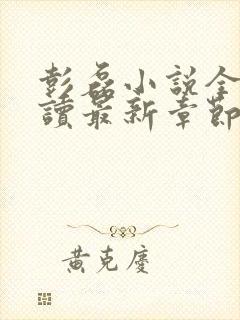 彭磊小說全
讀最新章節
黃克慶